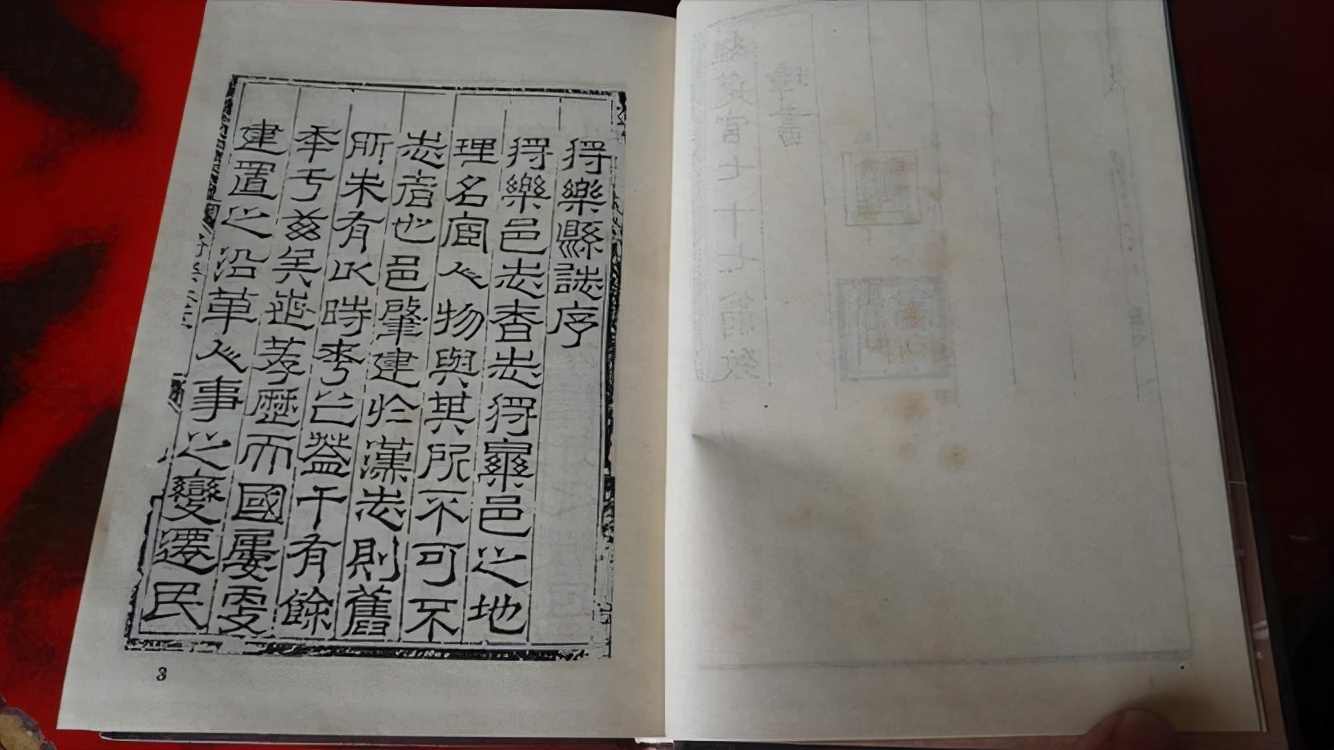 將樂縣誌序
將樂邑志者志將樂邑之地
理名宦人物與其所不可不
志者也邑肇建於漢志則舊
所未有以時考之蓋千有餘
年于茲矣世 歷而國屢更
建置之沿革人事之變遷民
3